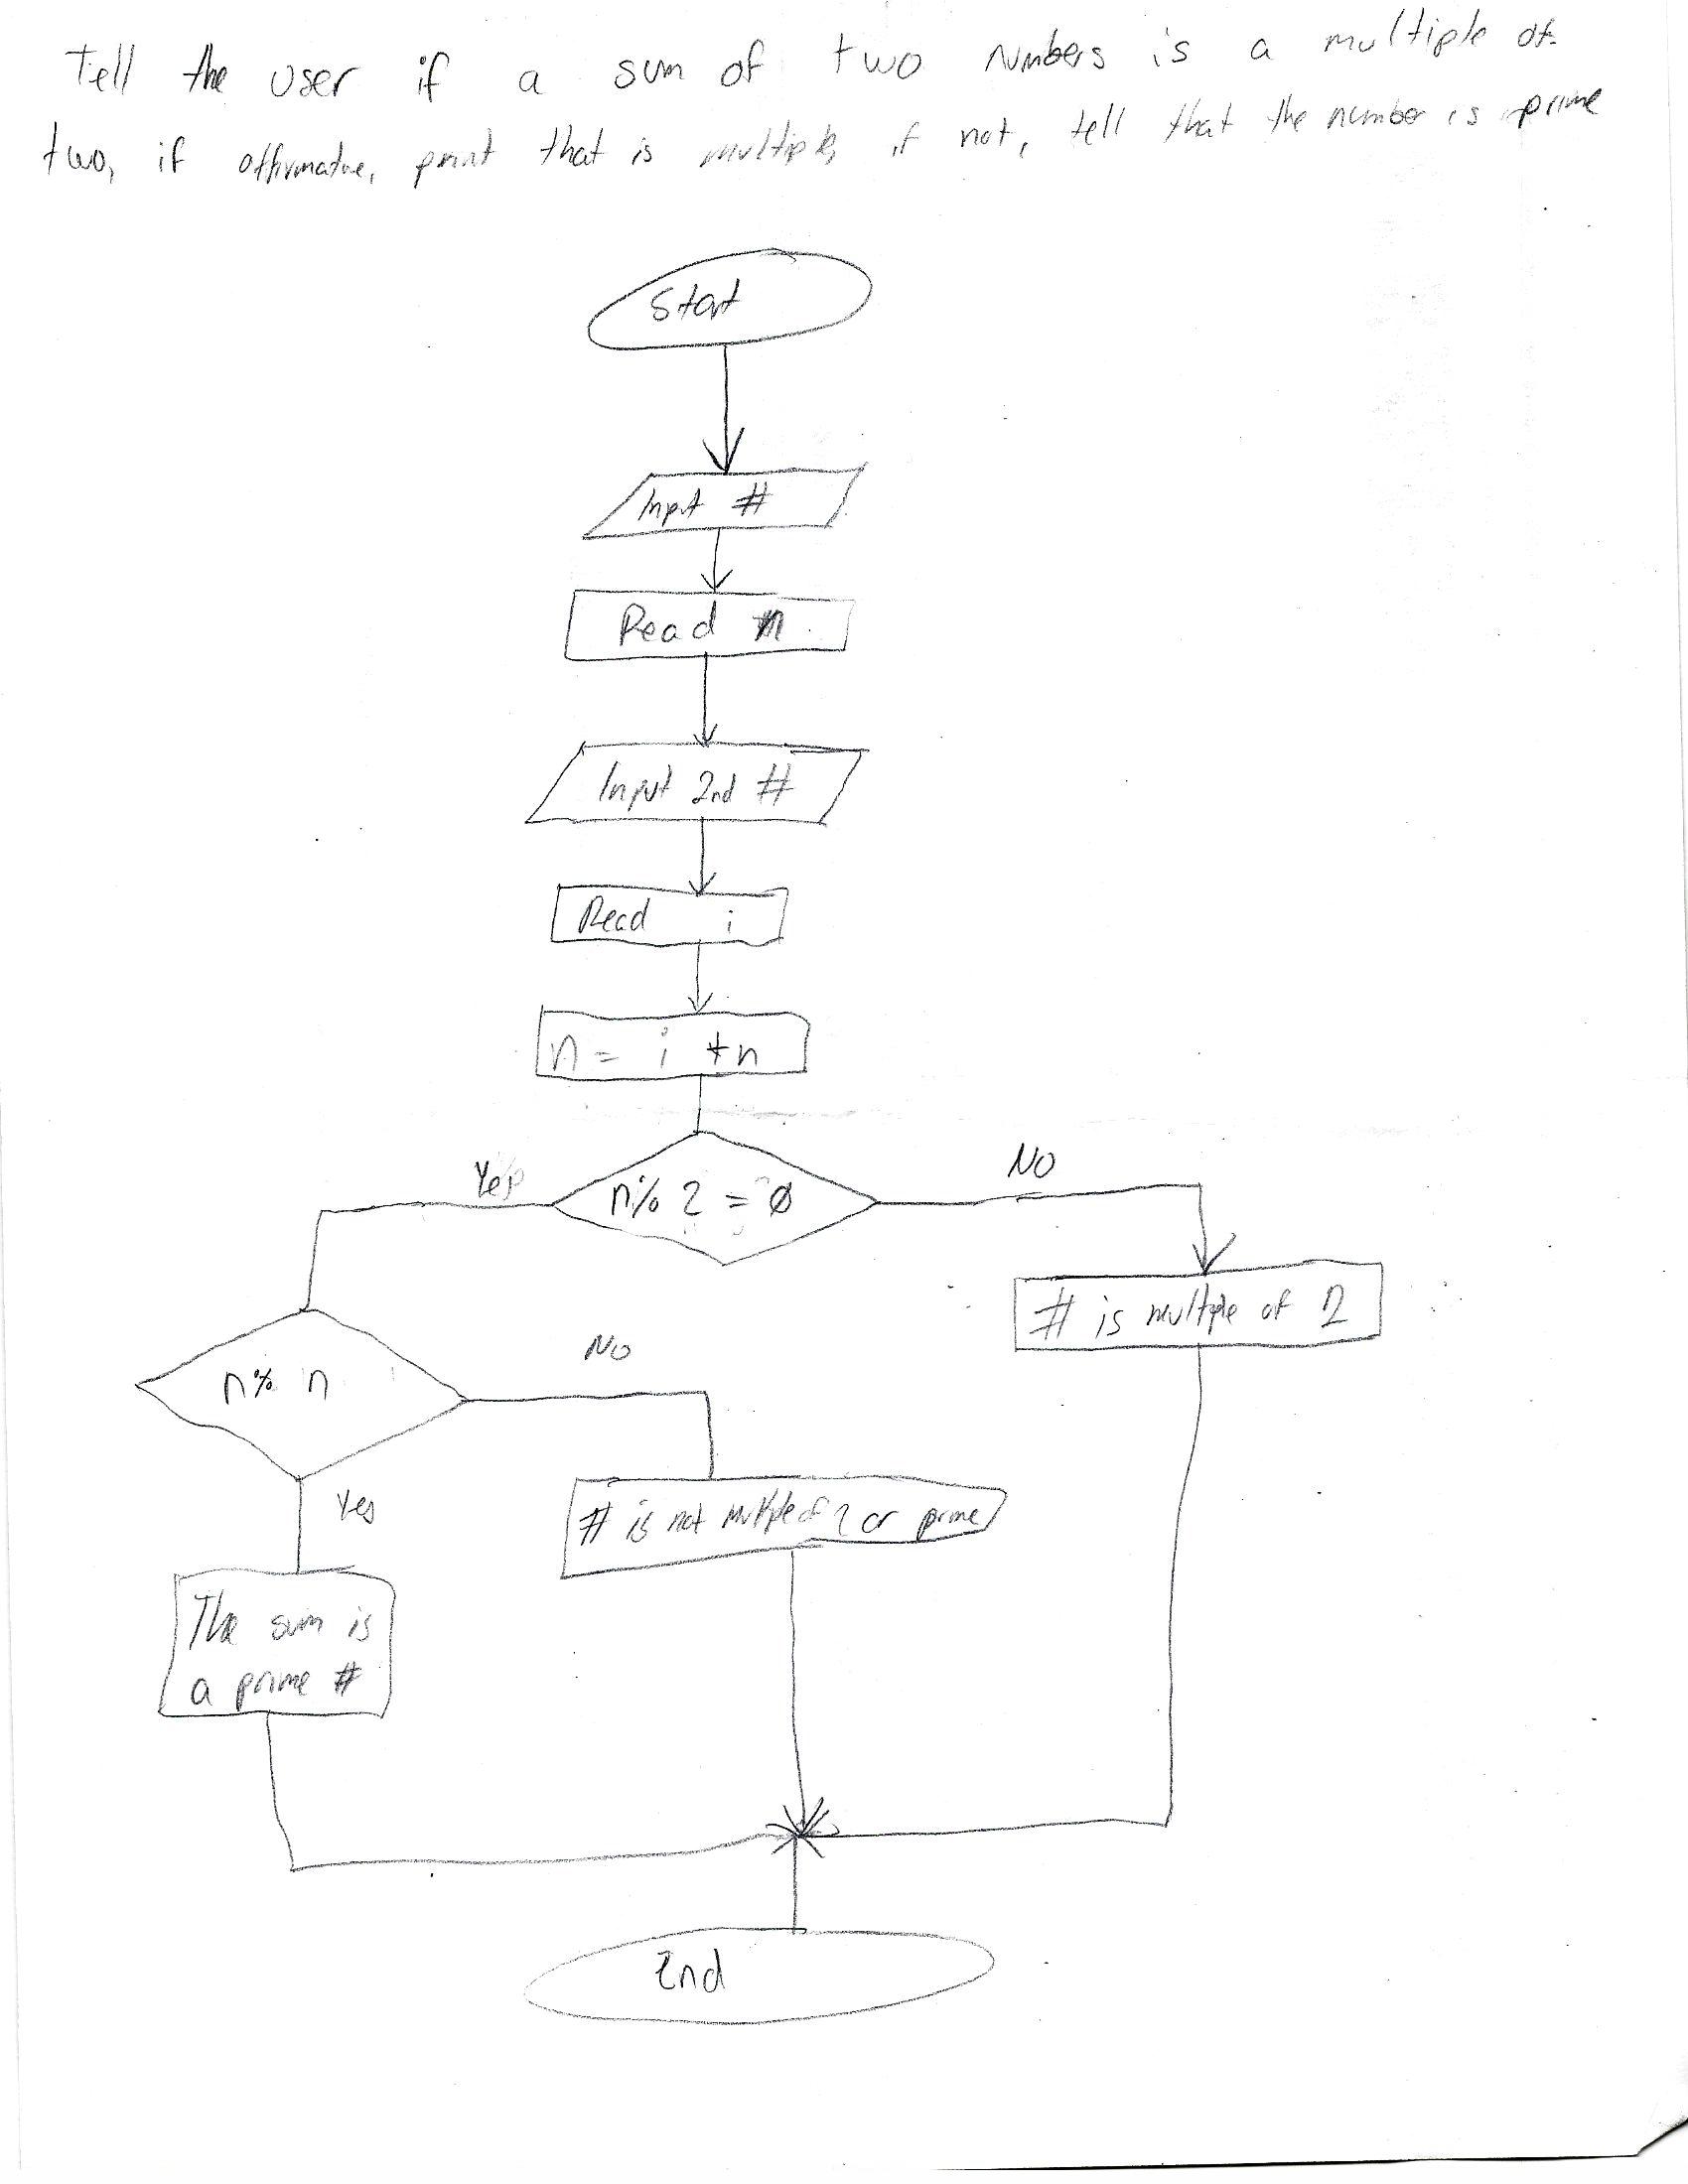 Tell the user if a sum of two numbers is a multiple of
two, if affirmative, print that is multiple, if not, tell that the number is prime
Start
Input #
Read n
Input 2nd #
Read i
n = i + n
n % 2 = 0
Yes
NO
# is multiple of 2
n % n
NO
Yes
# is not multiple of 2 or prime
The sum is
a prime #
End